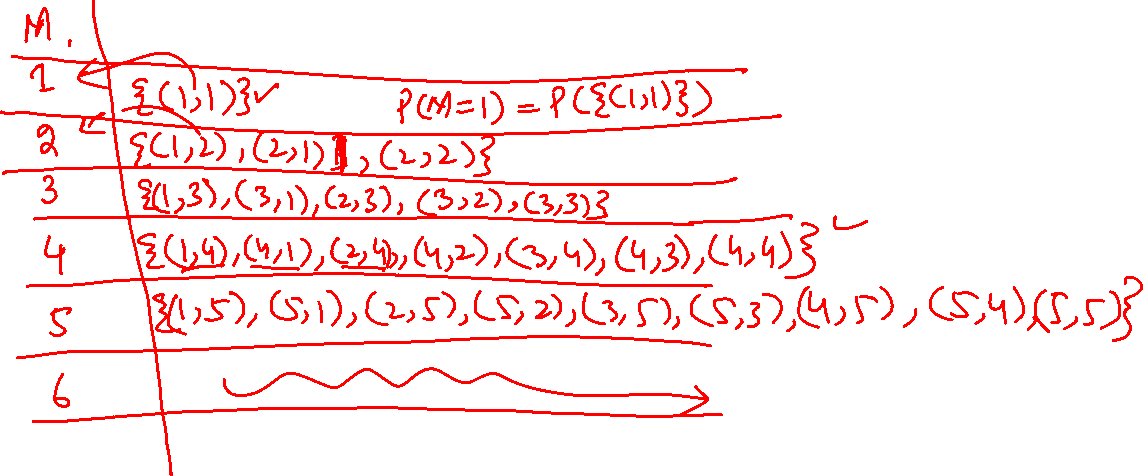 M.
1 {(1,1)}✓ P(M=1) = P({(1,1)})
2 {(1,2), (2,1), (2,2)}
3 {(1,3), (3,1), (2,3), (3,2), (3,3)}
4 {(1,4), (4,1), (2,4), (4,2), (3,4), (4,3), (4,4)} ✓
5 {(1,5), (5,1), (2,5), (5,2), (3,5), (5,3), (4,5), (5,4) (5,5)}
6